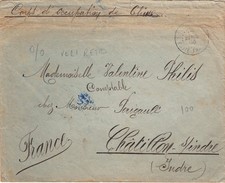 Corps d'occupation de Chine
Mademoiselle Valentine Philis
Comptable
chez Monsieur
100
France
Châtillon s/Indre
(Indre)